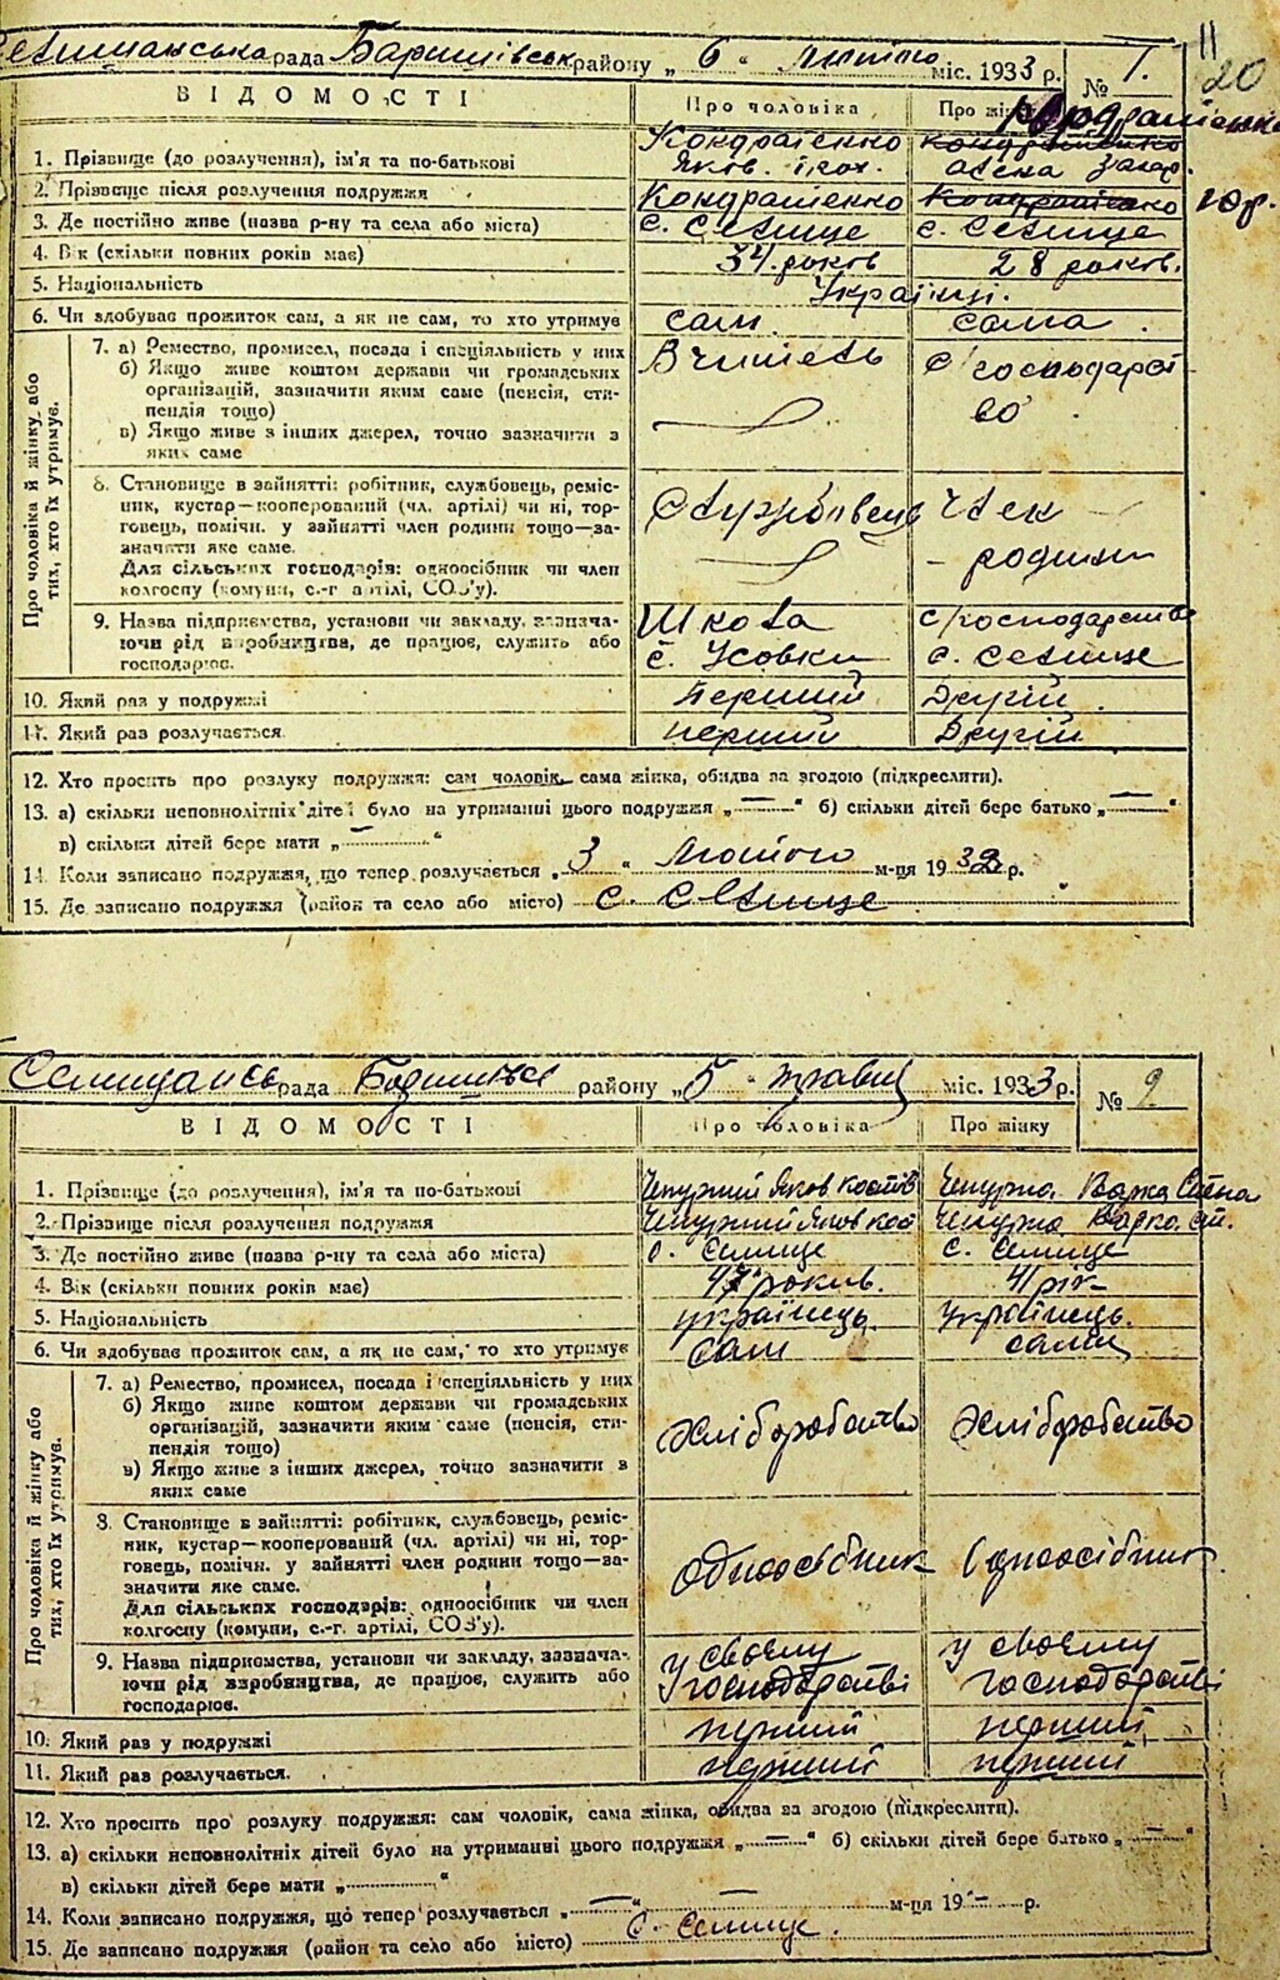 11
20
Селищанська рада Баришівськ району „ 6 “ лютого міс. 1933 р. № 1.
ВІДОМОСТІ Про чоловіка Про жінку
1. Прізвище (до розлучення), ім'я та по-батькові Кондратенко Кондратенко
Яков.
2. Прізвище після розлучення подружжя Кондратенко Кондратенко
3. Де постійно живе (назва р-ну та села або міста) с. Селище с. Селище
4. Вік (скільки повних років має) 34. років 28 років.
5. Національність Українці.
6. Чи здобуває прожиток сам, а як не сам, то хто утримує сам. сама.
Про чоловіка й жінку або
тих, хто їх утримує.
7. а) Ремество, промисел, посада і спеціяльність у них Вчитель с/господарст
б) Якщо живе коштом держави чи громадських
організацій, зазначити яким саме (пенсія, сти- во
пендія тощо)
в) Якщо живе з інших джерел, точно зазначити з
яких саме
8. Становище в зайнятті: робітник, службовець, реміс-
ник, кустар—кооперований (чл. артілі) чи ні, тор- Службовець член
говець, помічн. у зайнятті член родини тощо—за-
значити яке саме. – родини
Для сільських господарів: одноосібник чи член
колгоспу (комуни, с.-г артілі, СОЗ'у).
9. Назва підприємства, установи чи закладу, зазнача- Школа с/господарство
ючи рід виробництва, де працює, служить або с. Усовки с. Селище
господарює.
10. Який раз у подружжі перший Другій.
11. Який раз розлучається перший Другій
12. Хто просить про розлуку подружжя: сам чоловік, сама жінка, обидва за згодою (підкреслити).
13. а) скільки неповнолітніх дітей було на утриманні цього подружжя „ — “ б) скільки дітей бере батько „ — “
в) скільки дітей бере мати „ — “
14. Коли записано подружжя, що тепер розлучається „ 3 “ Лютого м-ця 1932 р.
15. Де записано подружжя (район та село або місто) с. Селище
рада району „ 5 “ травня міс. 1933 р. № 2
ВІДОМОСТІ Про чоловіка Про жінку
1. Прізвище (до розлучення), ім'я та по-батькові Чепурний Яков Чепурна Варка
2. Прізвище після розлучення подружжя Чепурний Яков Чепурна Варка
3. Де постійно живе (назва р-ну та села або міста) с. Селище с. Селище
4. Вік (скільки повних років має) 47 років. 41 рік
5. Національність українець. Українець.
6. Чи здобуває прожиток сам, а як не сам, то хто утримує сам сама
Про чоловіка й жінку або
тих, хто їх утримує.
7. а) Ремество, промисел, посада і спеціяльність у них
б) Якщо живе коштом держави чи громадських
організацій, зазначити яким саме (пенсія, сти- хліборобство хліборобство
пендія тощо)
в) Якщо живе з інших джерел, точно зазначити з
яких саме
8. Становище в зайнятті: робітник, службовець, реміс-
ник, кустар—кооперований (чл. артілі) чи ні, тор-
говець, помічн. у зайнятті член родини тощо—за- одноосібник одноосібник
значити яке саме.
Для сільських господарів: одноосібник чи член
колгоспу (комуни, с.-г. артілі, СОЗ'у).
9. Назва підприємства, установи чи закладу, зазнача- у своєму у своєму
ючи рід виробництва, де працює, служить або господарстві господарстві
господарює.
10. Який раз у подружжі перший перший
11. Який раз розлучається. перший перший
12. Хто просить про розлуку подружжя: сам чоловік, сама жінка, обидва за згодою (підкреслити).
13. а) скільки неповнолітніх дітей було на утриманні цього подружжя „ — “ б) скільки дітей бере батько „ — “
в) скільки дітей бере мати „ “
14. Коли записано подружжя, що тепер розлучається „ — “ — м-ця 19 — р.
15. Де записано подружжя (район та село або місто) с. Селище.